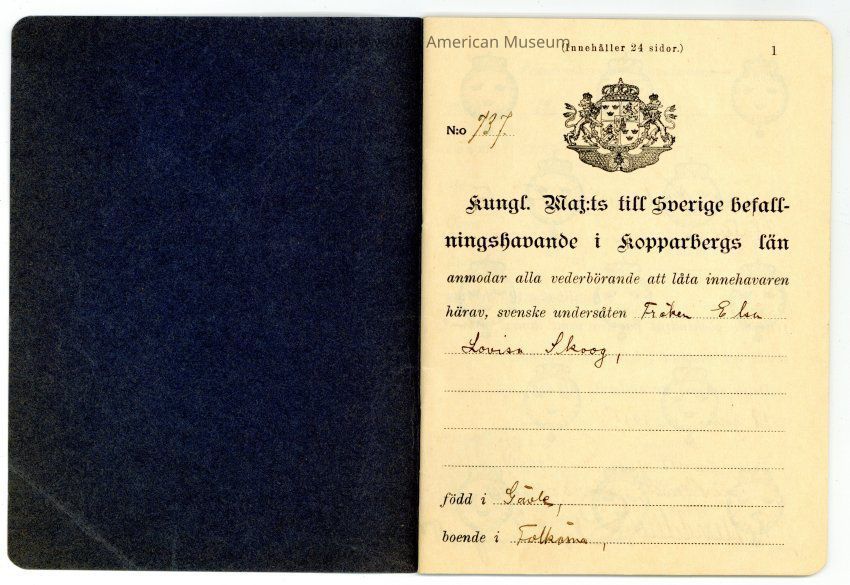 American Museum
(Innehåller 24 sidor.) 1
N:o 737.
Kungl. Maj:ts till Sverige befall-
ningshavande i Kopparbergs län
anmodar alla vederbörande att låta innehavaren
härav, svenske undersåten Fröken Elsa
Lovisa Skoog,
född i Gävle,
boende i